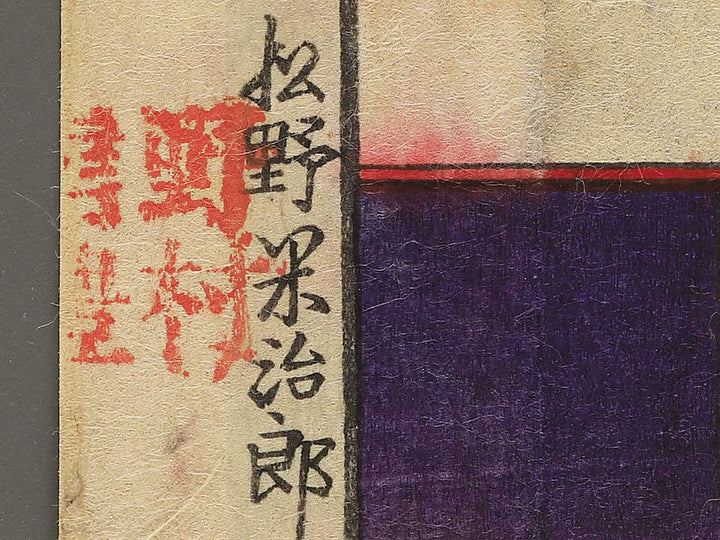 松野米治郎
野村